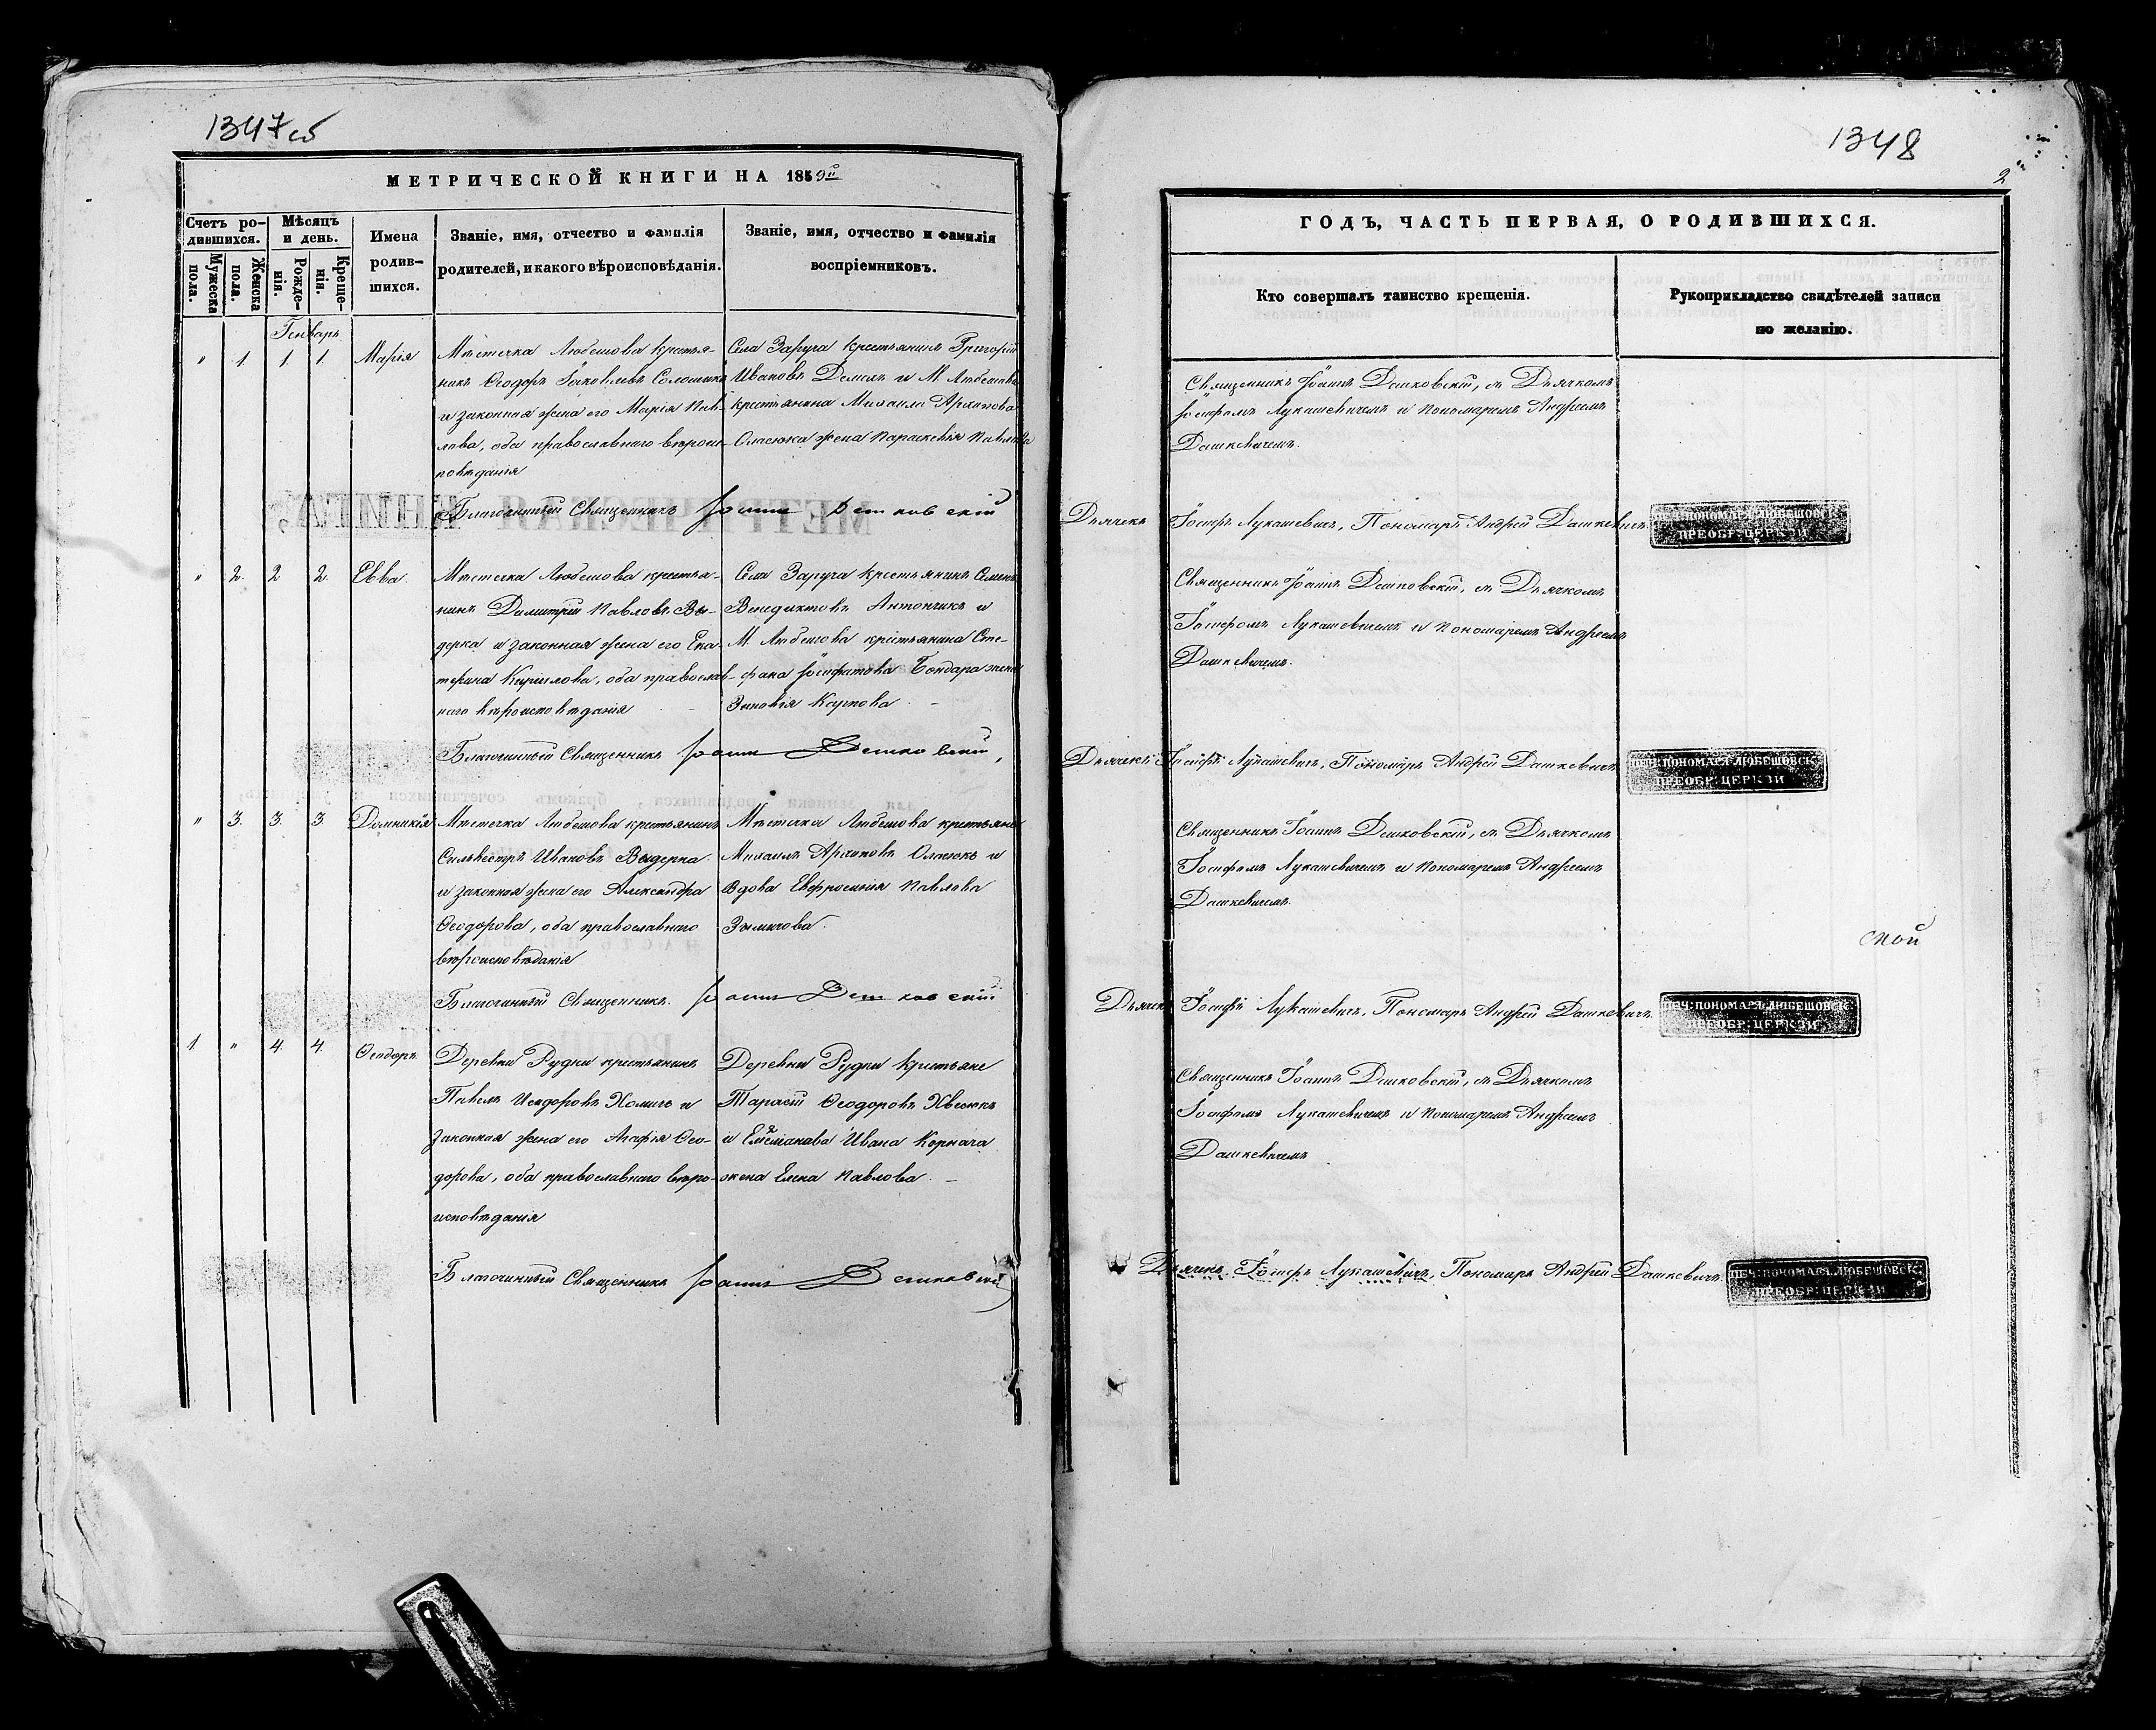 1347 об
МЕТРИЧЕСКОЙ КНИГИ НА 1859й
Счетъ ро-
дившихся.
Мужеска
пола.
Женска
пола.
Мѣсяцъ
и день.
Рожде-
нія.
Креще-
нія.
Имена
родив-
шихся.
Званіе, имя, отчество и фамилія
родителей, и какого вѣроисповѣданія.
Званіе, имя, отчество и фамилія
воспріемниковъ.
Генварь
" 1. 1. 1. Марія
Мѣстечка Любешова крестья-
нинъ Ѳеодоръ Іаковлевъ
и законная жена его Марія Пав-
лова, оба православнаго вѣроис-
повѣданія
Села Заруча крестьянинъ Григорій
Ивановъ Демехъ и М. Любешова
крестьянина Михаила Архипова
Оласюка жена Параскевія Павлова
Благочинный Священникъ Іоаннъ Дешковскій
" 2. 2. 2. Евва.
Мѣстечка Любешова крестья-
нинъ Димитрій Павловъ Вы-
дерка и законная жена его Ека-
терина Кирилова, оба православ-
наго вѣроисповѣданія
Села Заруча крестьянинъ Семенъ
Венедиктовъ Антончикъ и
М. Любешова крестьянина Сте-
фана Іосифатова Бондара жена
Зиновія Карпова
Благочинный Священникъ Іоаннъ Дешковскій,
" 3. 3. 3. Домникія
Мѣстечка Любешова крестьянинъ
Сильвестръ Ивановъ Выдерка
и законная жена его Александра
Ѳеодорова, оба православнаго
вѣроисповѣданія
Мѣстечка Любешова крестьяне
Михаилъ Архиповъ Оласюкъ и
Вдова Евфросинія Павлова
Благочинный Священникъ. Іоаннъ Дешковскій
1. " 4. 4. Ѳеодоръ
Деревни Рудки крестьянинъ
Павелъ Исидоровъ Хомичъ и
законная жена его Агафія Ѳео-
дорова, оба православнаго вѣро-
исповѣданія
Деревни Рудки крестьяне
Тарасій Ѳеодоровъ Хвесюкъ
и Ивана Корнача
жена Елена Павлова.
Благочинный Священникъ Іоаннъ Дешковскій
1348
2
ГОДЪ, ЧАСТЬ ПЕРВАЯ, О РОДИВШИХСЯ.
Кто совершалъ таинство крещенія.
Рукоприкладство свидѣтелей записи
по желанію.
Священникъ Іоаннъ Дешковскій, съ Дьячкомъ
Іосифомъ Лукашевичемъ и Пономаремъ Андреемъ
Дашкевичемъ.
Дьячекъ Іосифъ Лукашевичъ, Пономарь Андрей Дашкевичъ.
ПЕЧ: ПОНОМАРЯ ЛЮБЕШОВСК:
ПРЕОБР: ЦЕРКВИ
Священникъ Іоаннъ Дешковскій, съ Дьячкомъ
Іосифомъ Лукашевичемъ и Пономаремъ Андреемъ
Дашкевичемъ.
Дьячекъ Іосифъ Лукашевичъ, Пономарь Андрей Дашкевичъ
ПЕЧ: ПОНОМАРЯ ЛЮБЕШОВСК:
ПРЕОБР: ЦЕРКВИ
Священникъ Іоаннъ Дешковскій, съ Дьячкомъ
Іосифомъ Лукашевичемъ и Пономаремъ Андреемъ
Дашкевичемъ.
ской
Дьячекъ Іосифъ Лукашевичъ, Пономарь Андрей Дашкевичъ.
ПЕЧ: ПОНОМАРЯ ЛЮБЕШОВСК:
ПРЕОБР: ЦЕРКВИ
Священникъ Іоаннъ Дешковскій, съ Дьячкомъ
Іосифомъ Лукашевичемъ и Пономаремъ Андреемъ
Дашкевичемъ
Дьячекъ Іосифъ Лукашевичъ, Пономарь Андрей Дашкевичъ.
ПЕЧ: ПОНОМАРЯ ЛЮБЕШОВСК:
ПРЕОБР: ЦЕРКВИ